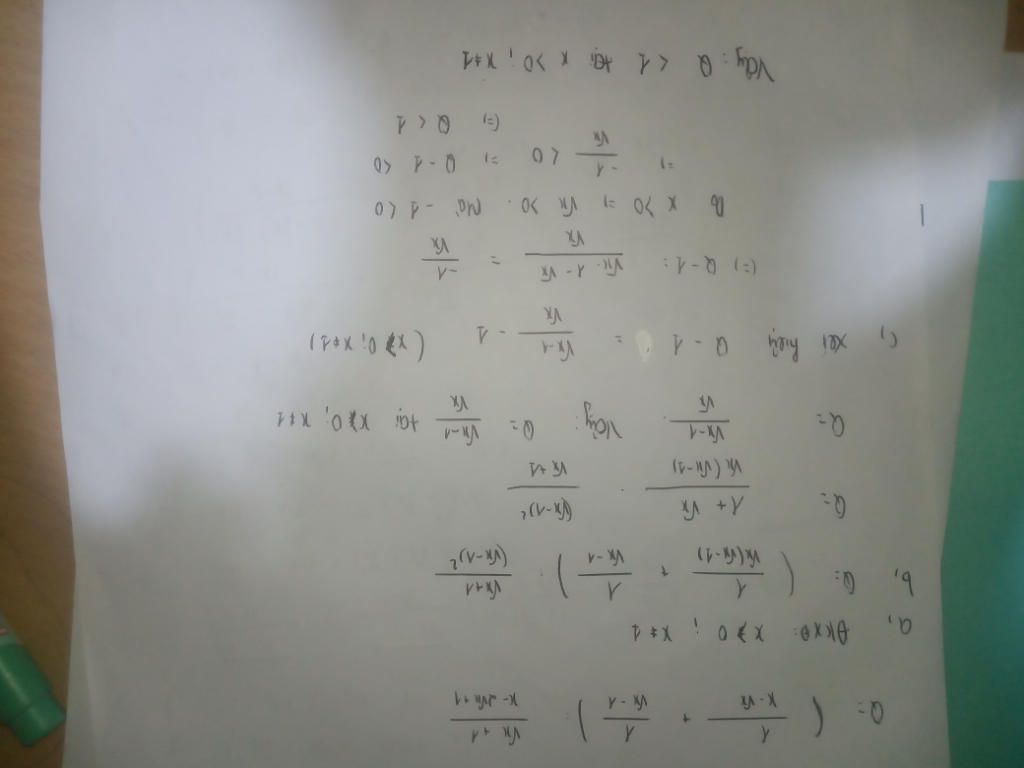 Q= ( 1/(x-√x) + 1/(√x-1) ) : (√x+1)/(x-2√x+1)
a, ĐKXĐ: x > 0 ; x ≠ 1
b, Q= ( 1/(√x(√x-1)) + 1/(√x-1) ) : (√x+1)/(√x-1)²
Q= (1+√x)/(√x(√x-1)) . (√x-1)²/(√x+1)
Q= (√x-1)/√x . Vậy: Q= (√x-1)/√x tại x > 0; x ≠ 1
c, xét hiệu Q - 1 = (√x-1)/√x - 1 (x > 0; x ≠ 1)
(=) Q - 1 = (√x - 1 - √x)/√x = -1/√x
Do x > 0 =) √x > 0 . Mà -1 < 0
=) -1/√x < 0 =) Q - 1 < 0
(=) Q < 1
Vậy: Q < 1 tại x > 0 ; x ≠ 1